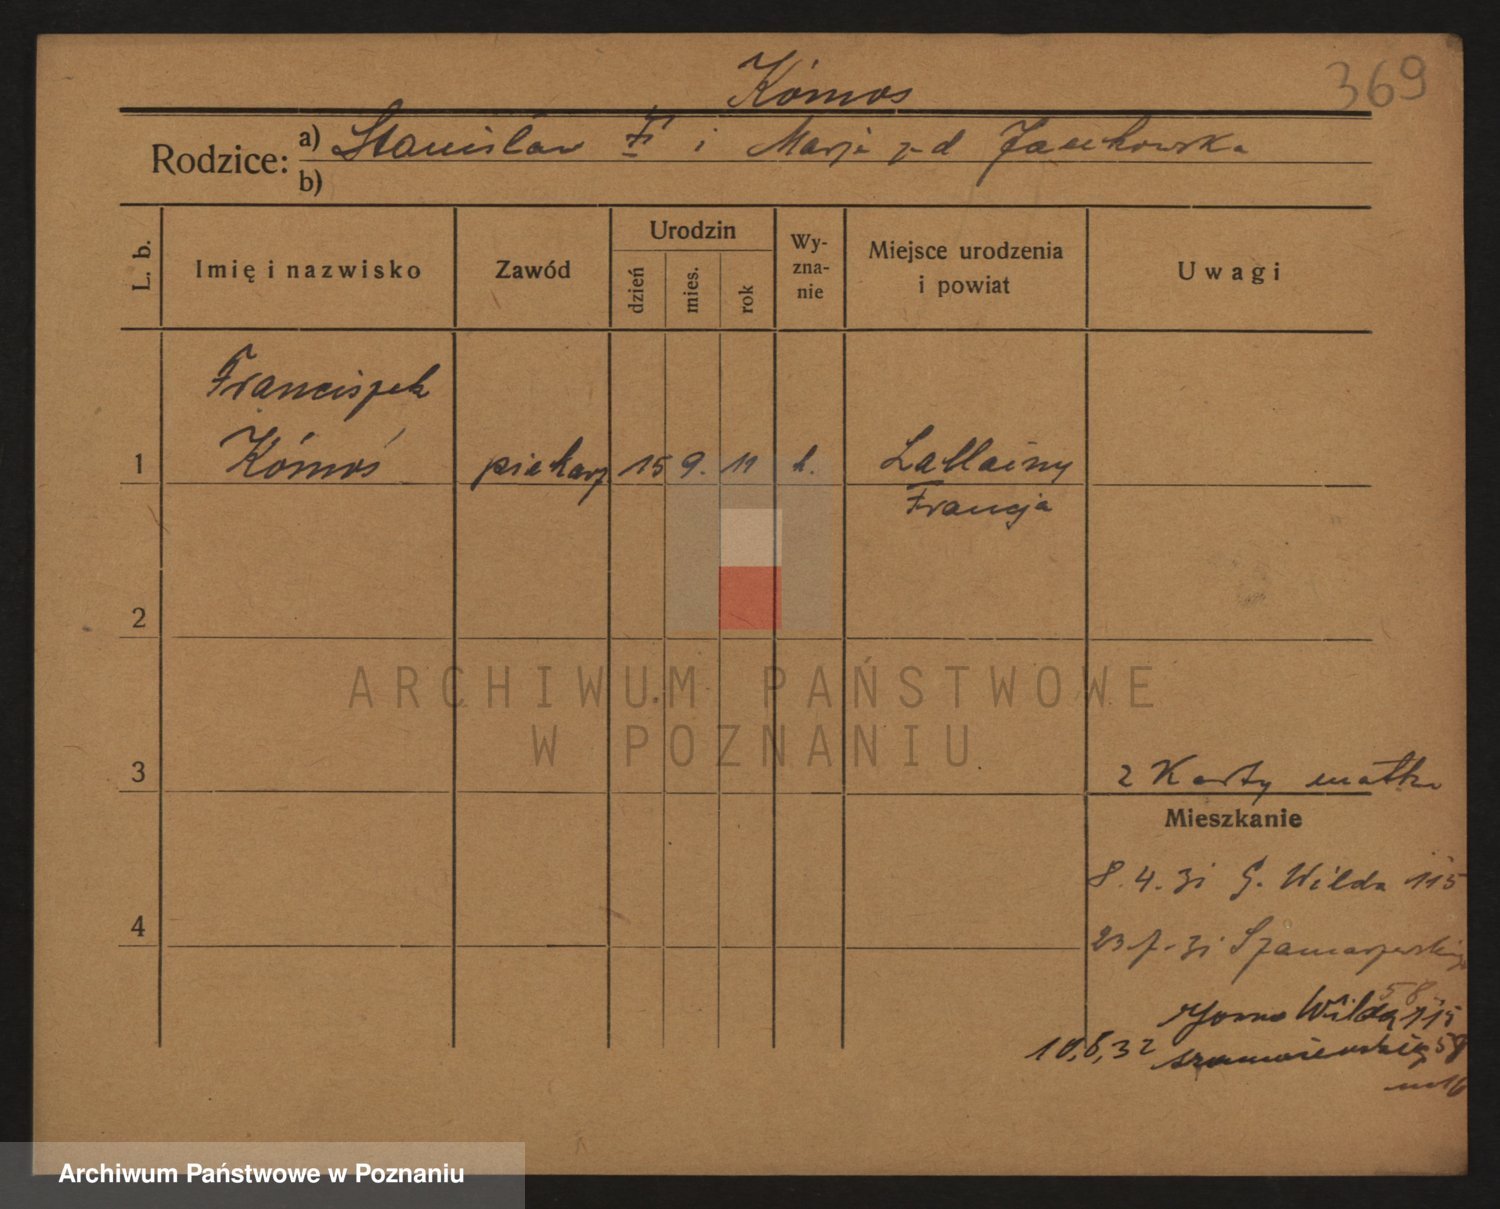 369
Kómos
Rodzice: a) Stanisław i Marja z d Jankowska
b)
L. b.
Imię i nazwisko
Zawód
Urodzin
dzień
mies.
rok
Wy-
zna-
nie
Miejsce urodzenia
i powiat
Uwagi
Franciszek
1 Kómoś piekarz 15 9. 11 k. Lallainy
Francja
2
ARCHIWUM PAŃSTWOWE
W POZNANIU
3
2 Karty matka
Mieszkanie
8. 4. 31 G. Wilda 115
4
23 31 Szamarzewskiego
58
Wilda 115
32 58
Archiwum Państwowe w Poznaniu